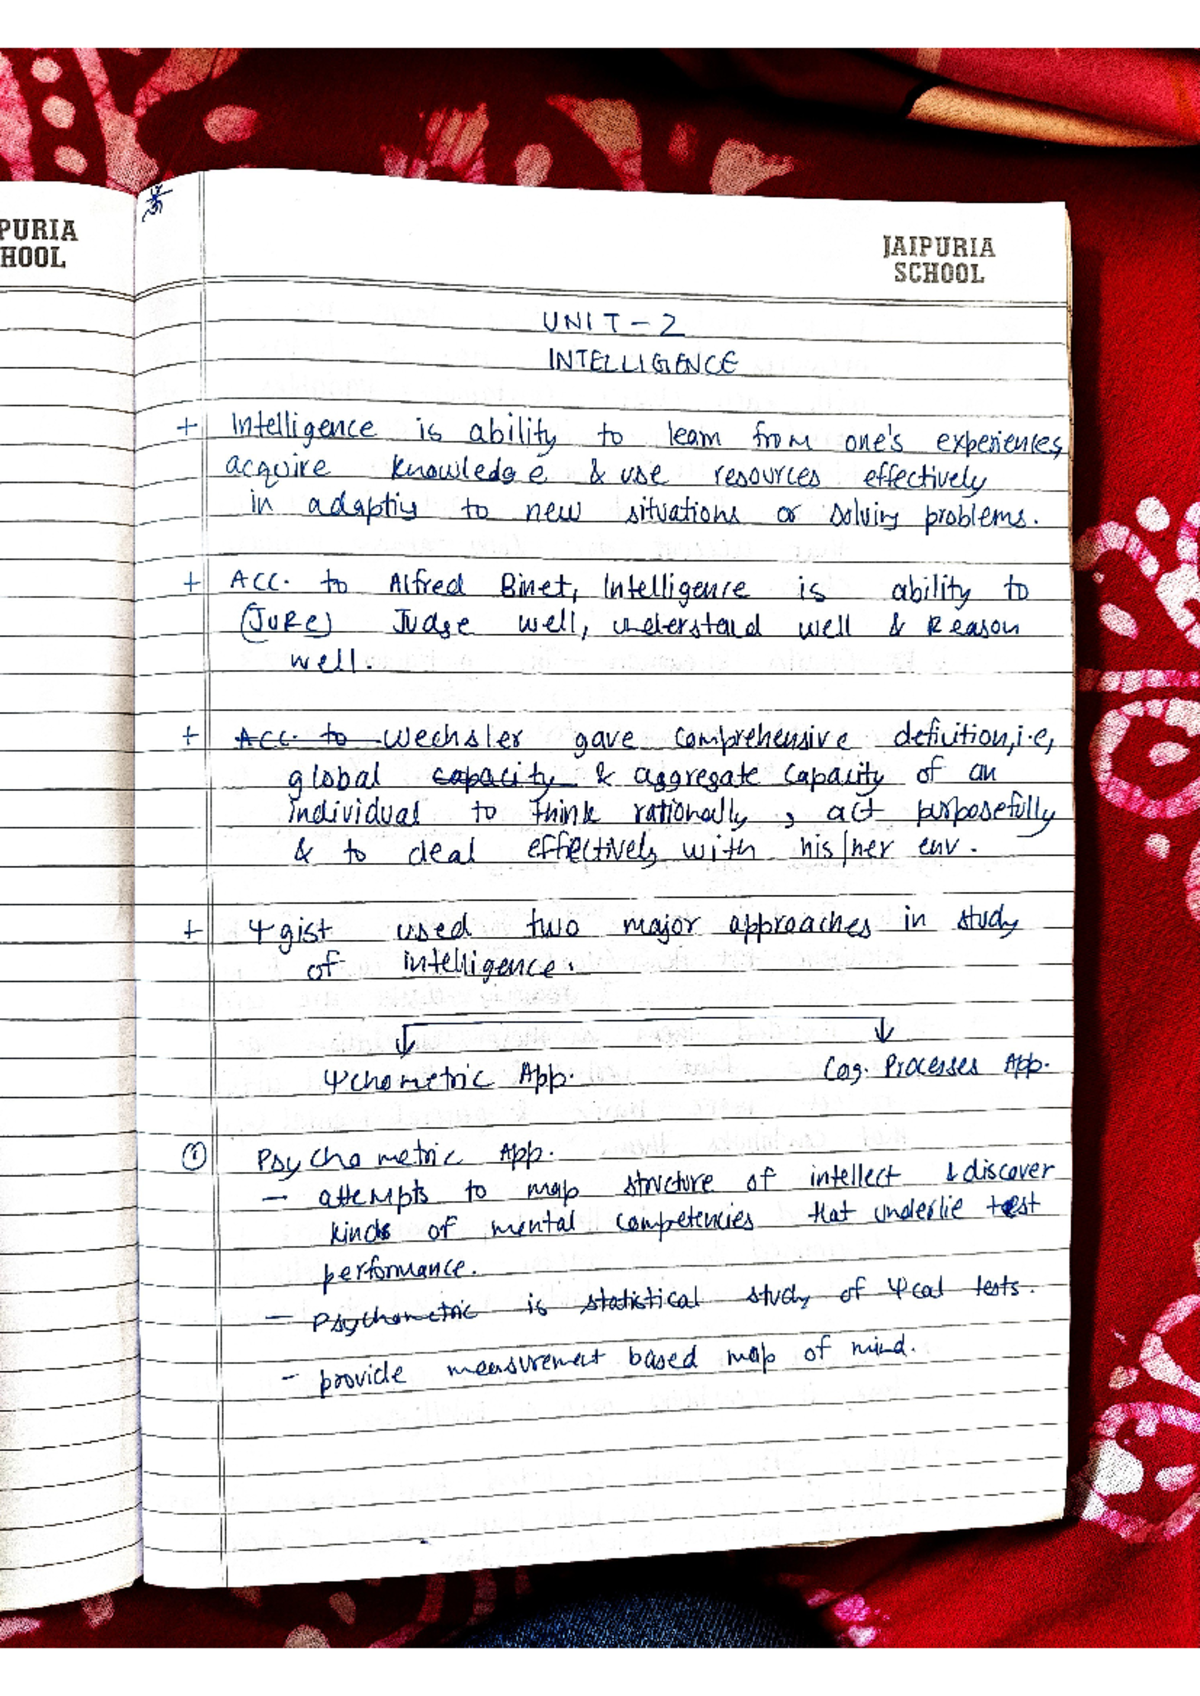 PURIA
HOOL
JAIPURIA
SCHOOL
UNIT - 2
INTELLIGENCE
+ Intelligence is ability to learn from one's experiences,
acquire knowledge & use resources effectively
in adapting to new situations or solving problems.
+ Acc. to Alfred Binet, Intelligence is ability to
(JURe) Judge well, understand well & Reason
well.
+ Acc. to Wechsler gave comprehensive definition, i.e,
global capacity & aggregate capacity of an
individual to think rationally, act purposefully
& to deal effectively with his/her env.
+ Ψgist used two major approaches in study
of intelligence.
Ψchometric App. Cog. Processes App.
① Psychometric App.
- attempts to map structure of intellect & discover
kinds of mental competencies that underlie test
performance.
- Psychometric is statistical study of Ψcal tests.
- provide measurement based map of mind.